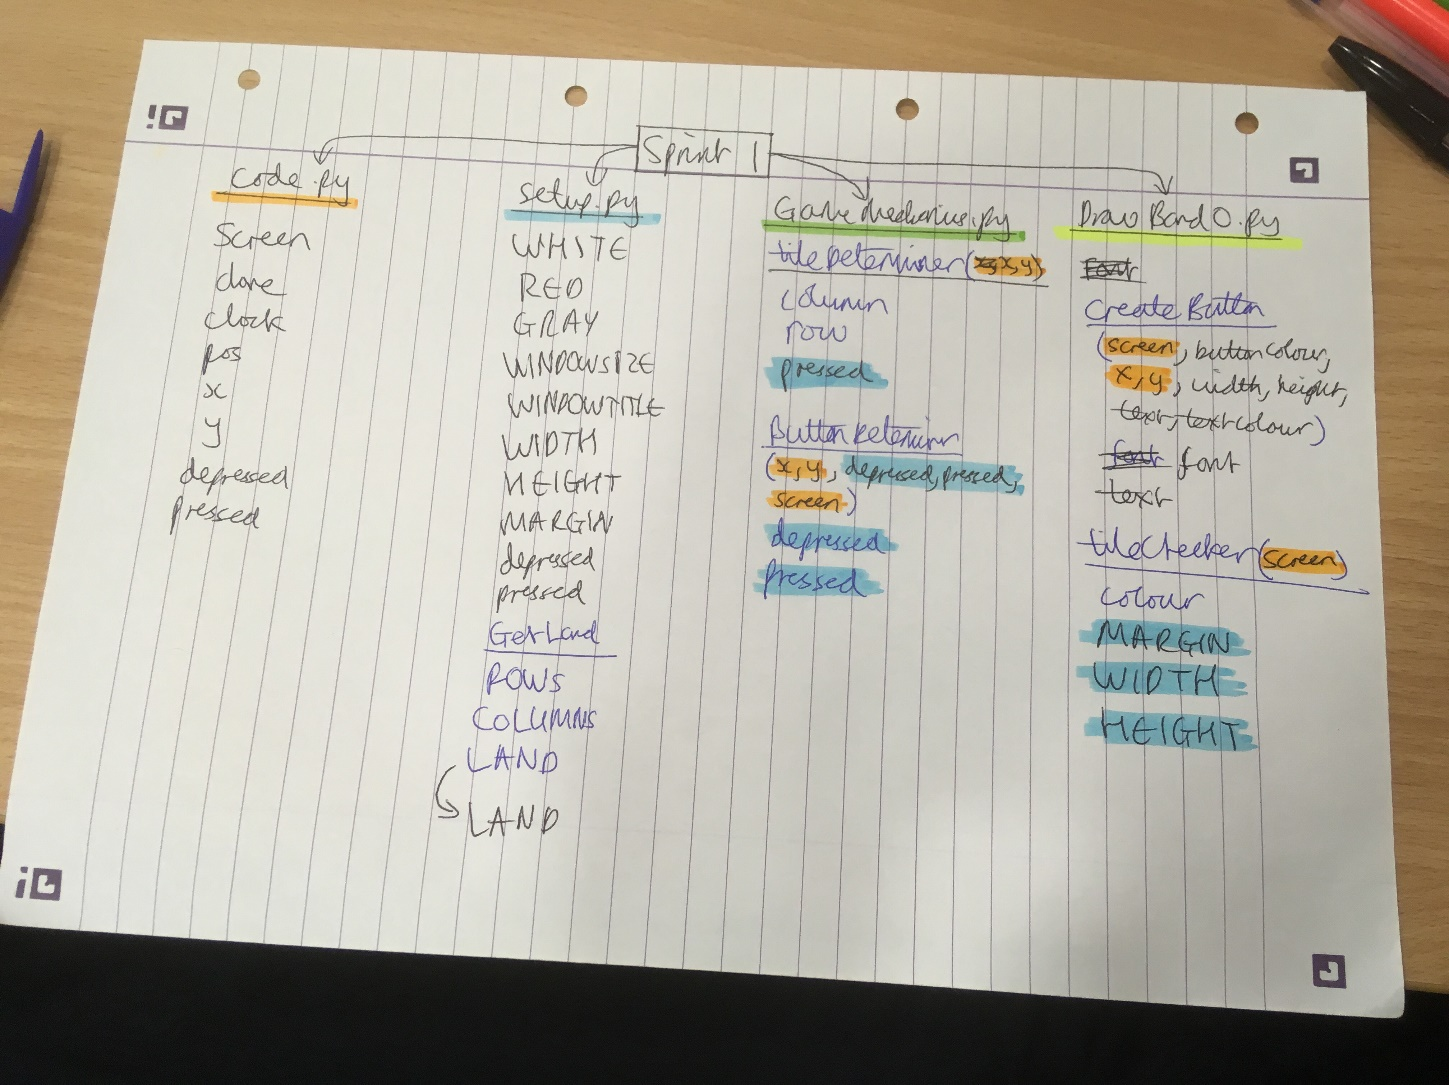 Sprint 1
code.py
Screen
done
clock
pos
x
y
depressed
pressed
setup.py
WHITE
RED
GRAY
WINDOWSIZE
WINDOWTITLE
WIDTH
HEIGHT
MARGIN
depressed
pressed
GetLand
ROWS
COLUMNS
LAND
LAND
GameMechanics.py
tileDeterminer(x, y)
column
row
pressed
ButtonDeterminer
(x, y, depressed, pressed,
screen)
depressed
pressed
Draw BandO.py
font
createButton
(screen, buttoncolour,
x, y, width, height,
text, textcolour)
font font
text
tileChecker(screen)
colour
MARGIN
WIDTH
HEIGHT